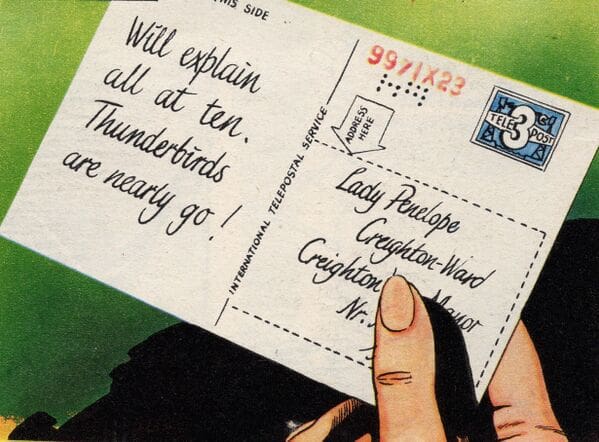 THIS SIDE
Will explain
all at ten.
Thunderbirds
are nearly go!
INTERNATIONAL TELEPOSTAL SERVICE
9971X23
ADDRESS
HERE
TELE 3 POST
Lady Penelope
Creighton-Ward
Creighton Manor
Nr.